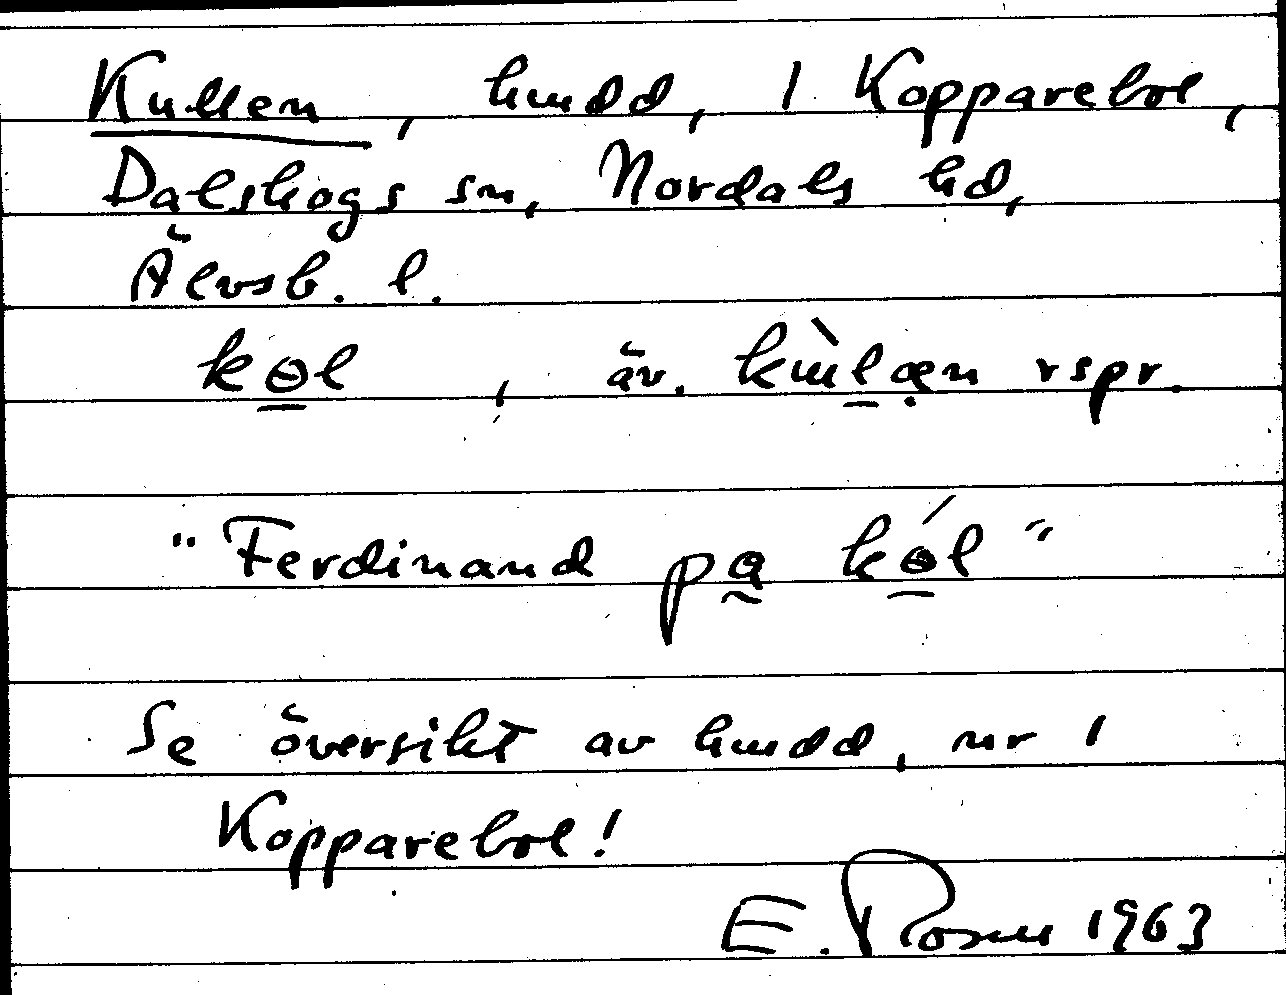 Kullen, hmdd, 1 Kopparebol,
Dalskogs sn, Nordals hd,
Älvsb. l.
kɵl, äv. rspr.
"Ferdinand pa kɵ́l"
Se översikt av hmdd, nr 1
Kopparebol!
E. Rosm 1963